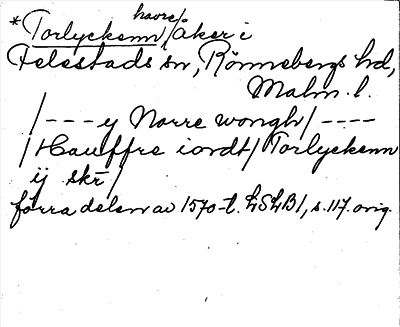 havre/
*Torlyckenn /åker i
Felestads sn, Rönnebergs hd,
Malm. l.
/--- y Norre wongh/ ----
/Hauffre iordt/ Torlyckenn
ij skr/
förra delen av 1570-t. LSLB1, s. 117. orig.